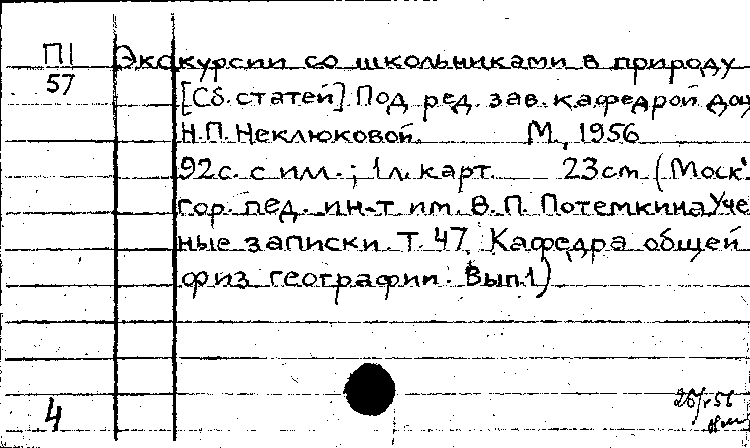 П1 Экскурсии со школьниками в природу
57 [Сб. статей] Под ред. зав. кафедрой доц
Н.П. Неклюковой. М., 1956
92с. с илл.; 1л. карт. 23cm (Моск.
гор. пед. ин-т им. В. П. Потемкина Уче
ные записки. Т. 47. Кафедра общей
физ географии. Вып. 1)
4